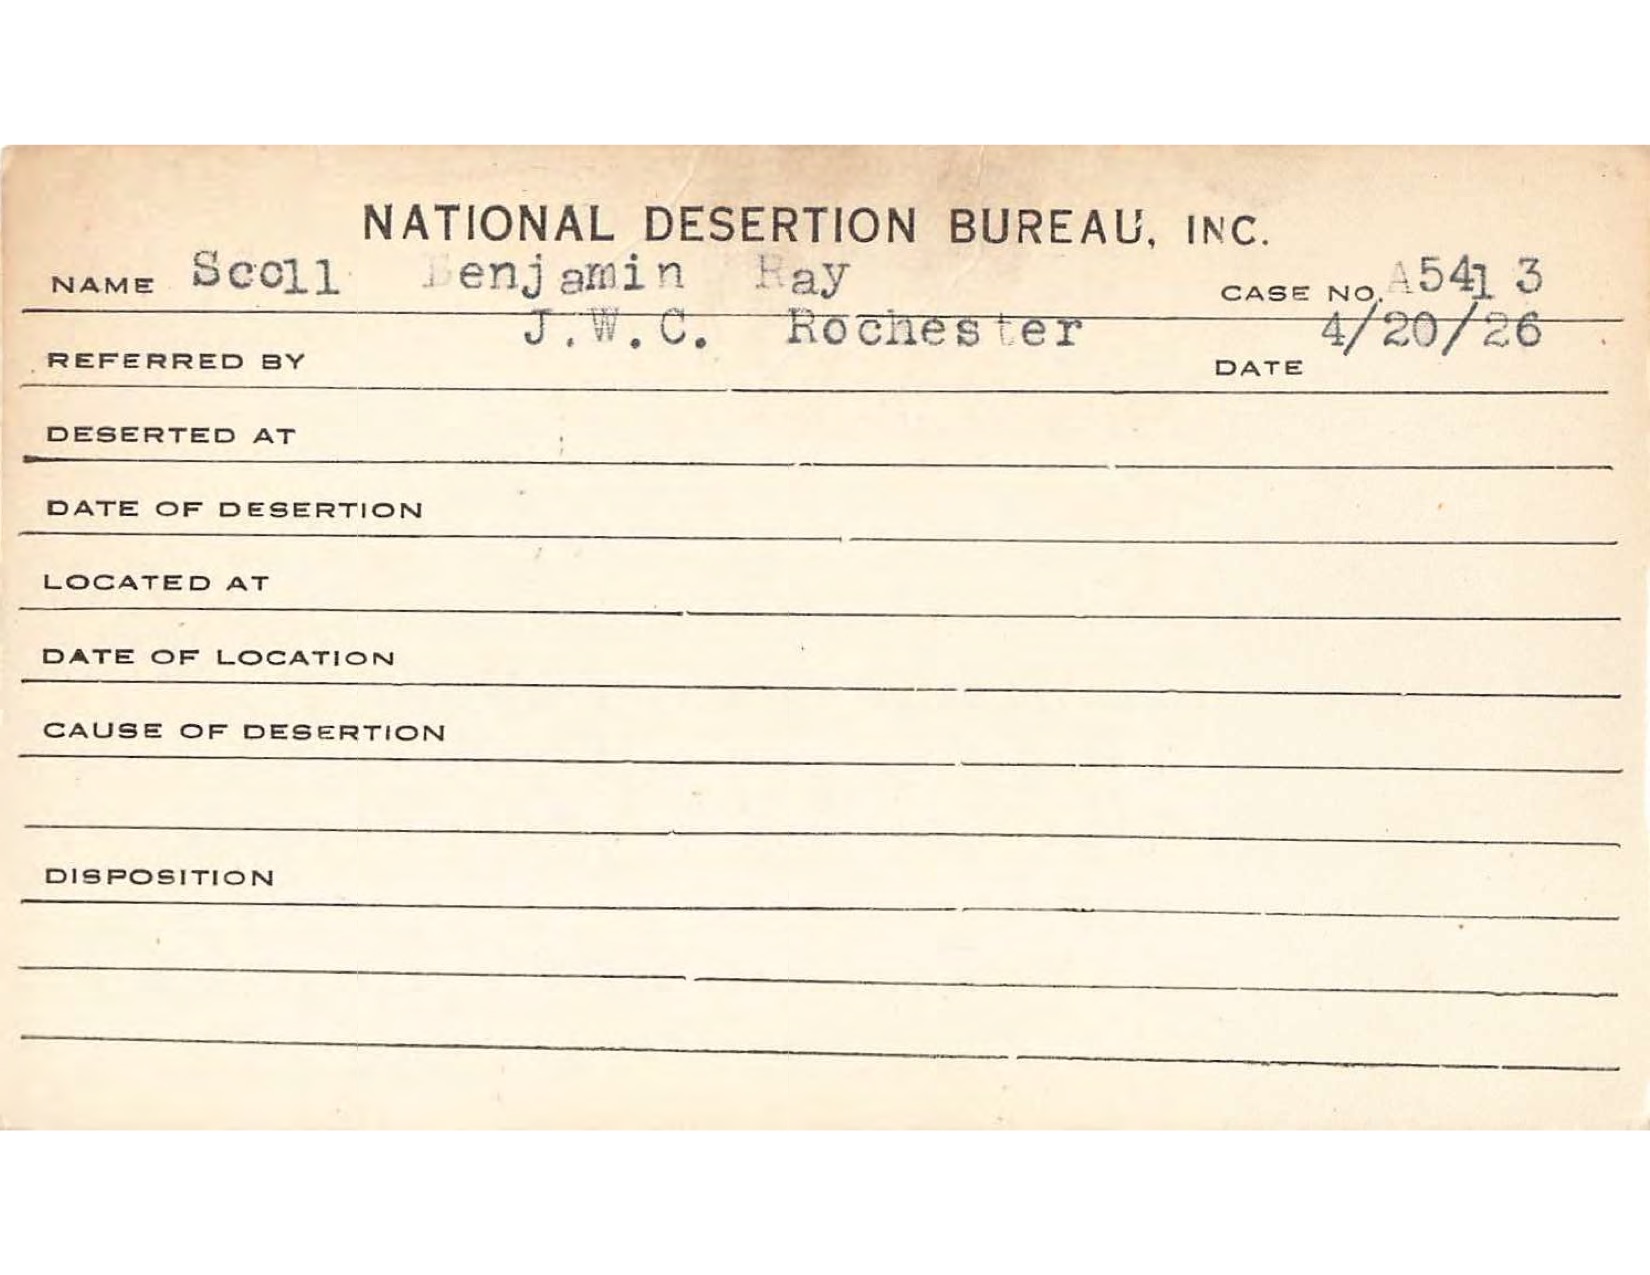 NATIONAL DESERTION BUREAU, INC.
NAME Scoll Benjamin Ray CASE NO. A5413
REFERRED BY J.W.C. Rochester DATE 4/20/26
DESERTED AT
DATE OF DESERTION
LOCATED AT
DATE OF LOCATION
CAUSE OF DESERTION
DISPOSITION